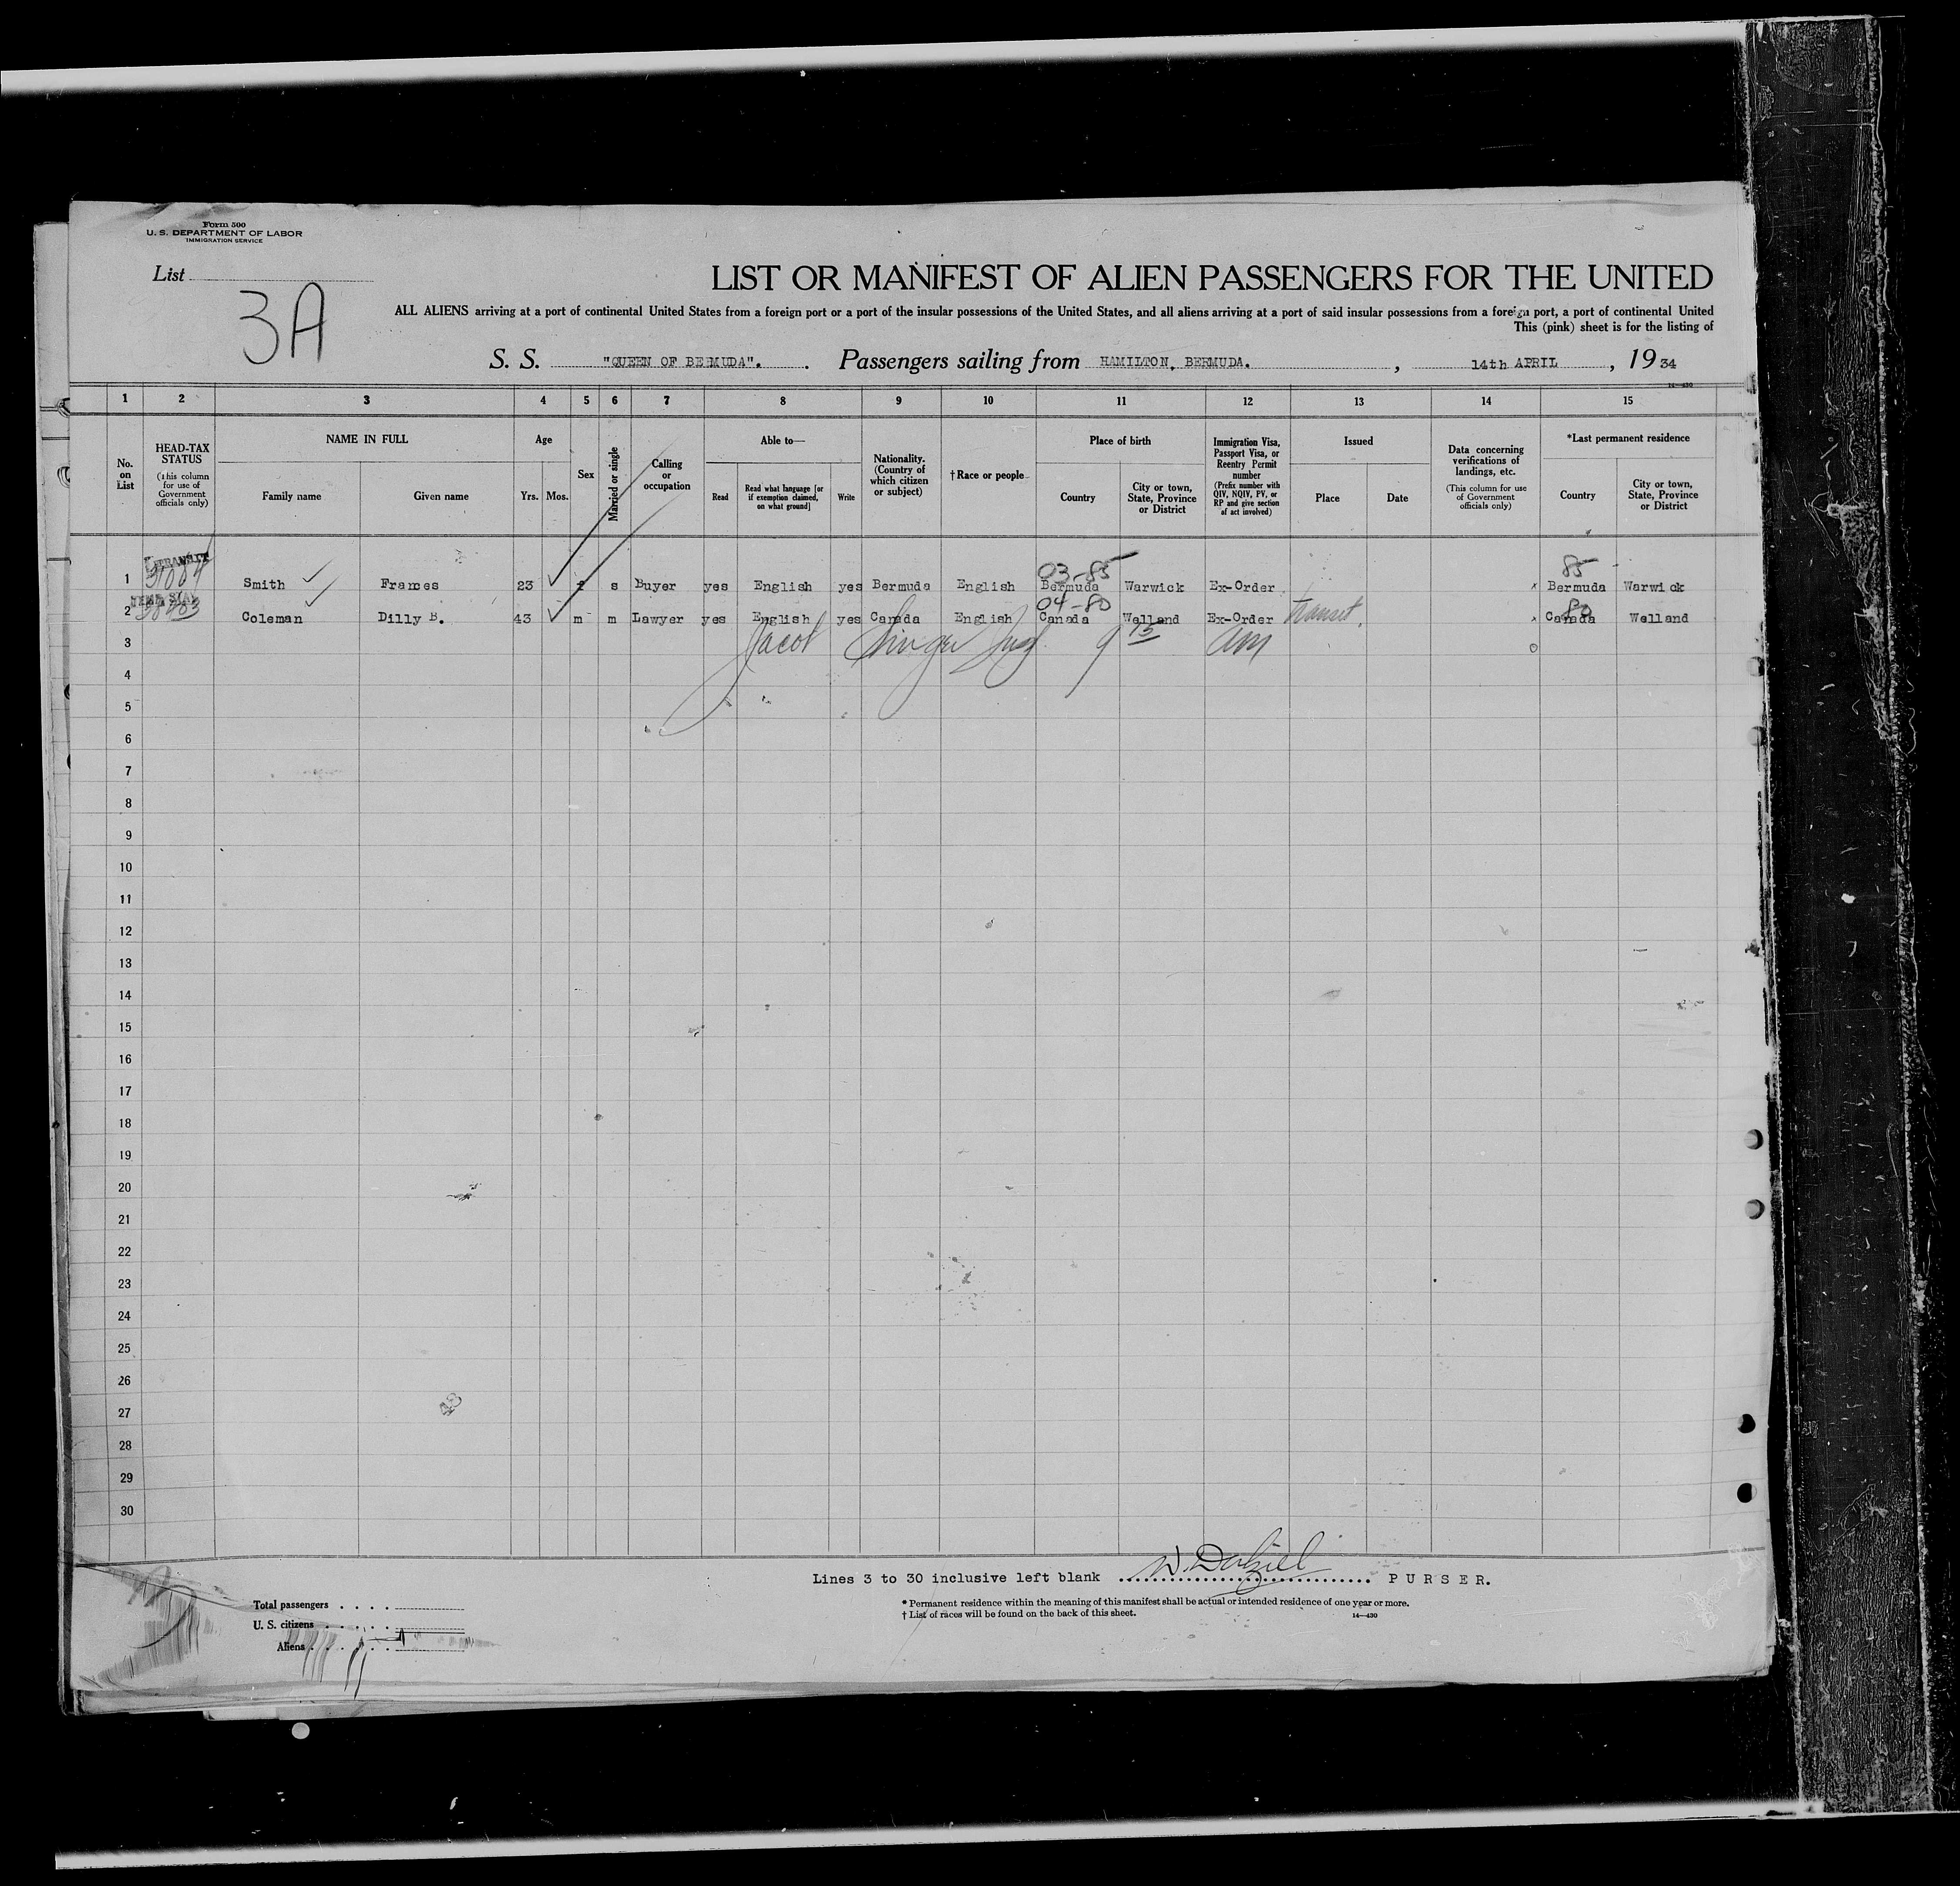 Form 500
U. S. DEPARTMENT OF LABOR
IMMIGRATION SERVICE
List
3A
LIST OR MANIFEST OF ALIEN PASSENGERS FOR THE UNITED
ALL ALIENS arriving at a port of continental United States from a foreign port or a port of the insular possessions of the United States, and all aliens arriving at a port of said insular possessions from a foreign port, a port of continental United
This (pink) sheet is for the listing of
S. S. "QUEEN OF BERMUDA". Passengers sailing from HAMILTON, BERMUDA. , 14th APRIL , 1934
14—430
1 2 3 4 5 6 7 8 9 10 11 12 13 14 15
No. on List
HEAD-TAX STATUS
(This column for use of Government officials only)
NAME IN FULL
Family name
Given name
Age
Yrs.
Mos.
Sex
Married or single
Calling or occupation
Able to—
Read
Read what language [or if exemption claimed, on what ground]
Write
Nationality. (Country of which citizen or subject)
†Race or people
Place of birth
Country
City or town, State, Province or District
Immigration Visa, Passport Visa, or Reentry Permit number
(Prefix number with QIV, NQIV, PV, or RP and give section of act involved)
Issued
Place
Date
Data concerning verifications of landings, etc.
(This column for use of Government officials only)
*Last permanent residence
Country
City or town, State, Province or District
TRANSIT
03-85 85
1 Smith Frames 23 f s Buyer yes English yes Bermuda English Bermuda Warwick Ex-Order x Bermuda Warwick
04-80 80
2 Coleman Dilly B. 43 m m Lawyer yes English yes Canada English Canada Welland Ex-Order transit. x Canada Welland
3 Jacob 9 15 am
4
5
6
7
8
9
10
11
12
13
14
15
16
17
18
19
20
21
22
23
24
25
26
27
28
29
30
48
Lines 3 to 30 inclusive left blank W. Dalziel PURSER.
* Permanent residence within the meaning of this manifest shall be actual or intended residence of one year or more.
† List of races will be found on the back of this sheet.
14—430
Total passengers
U. S. citizens
Aliens